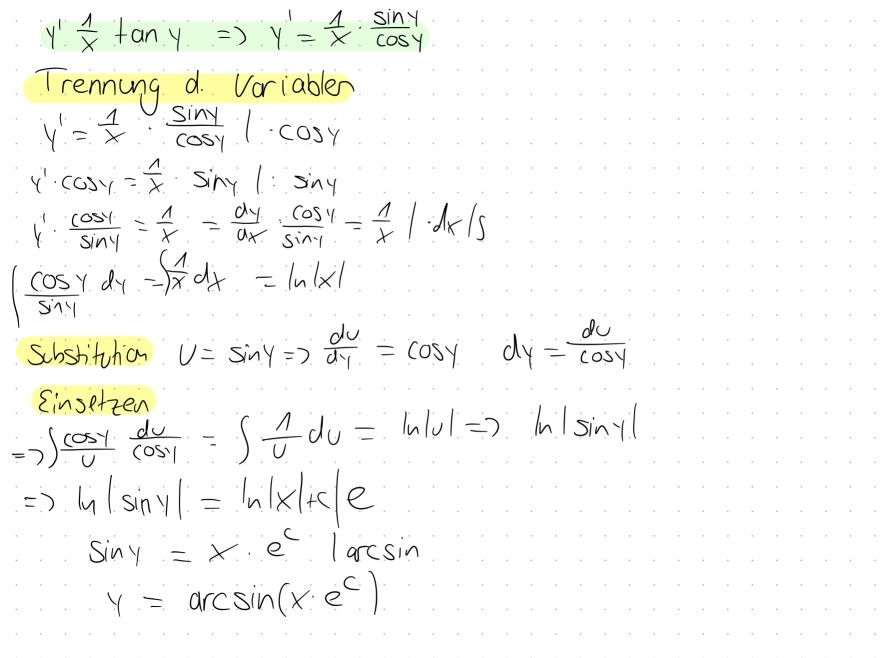 y' 1/x tan y => y' = 1/x · siny/cosy
Trennung d. Variablen
y' = 1/x · siny/cosy | · cosy
y' · cosy = 1/x · siny | : siny
y' · cosy/siny = 1/x = dy/dx · cosy/siny = 1/x | · dx | ∫
∫ cosy/siny dy = ∫ 1/x dx = ln|x|
Substitution U = siny => du/dy = cosy dy = du/cosy
Einsetzen
=> ∫ cosy/u du/cosy = ∫ 1/u du = ln|u| => ln|siny|
=> ln|siny| = ln|x|+c | e
siny = x · e^c | arcsin
y = arcsin(x · e^c)